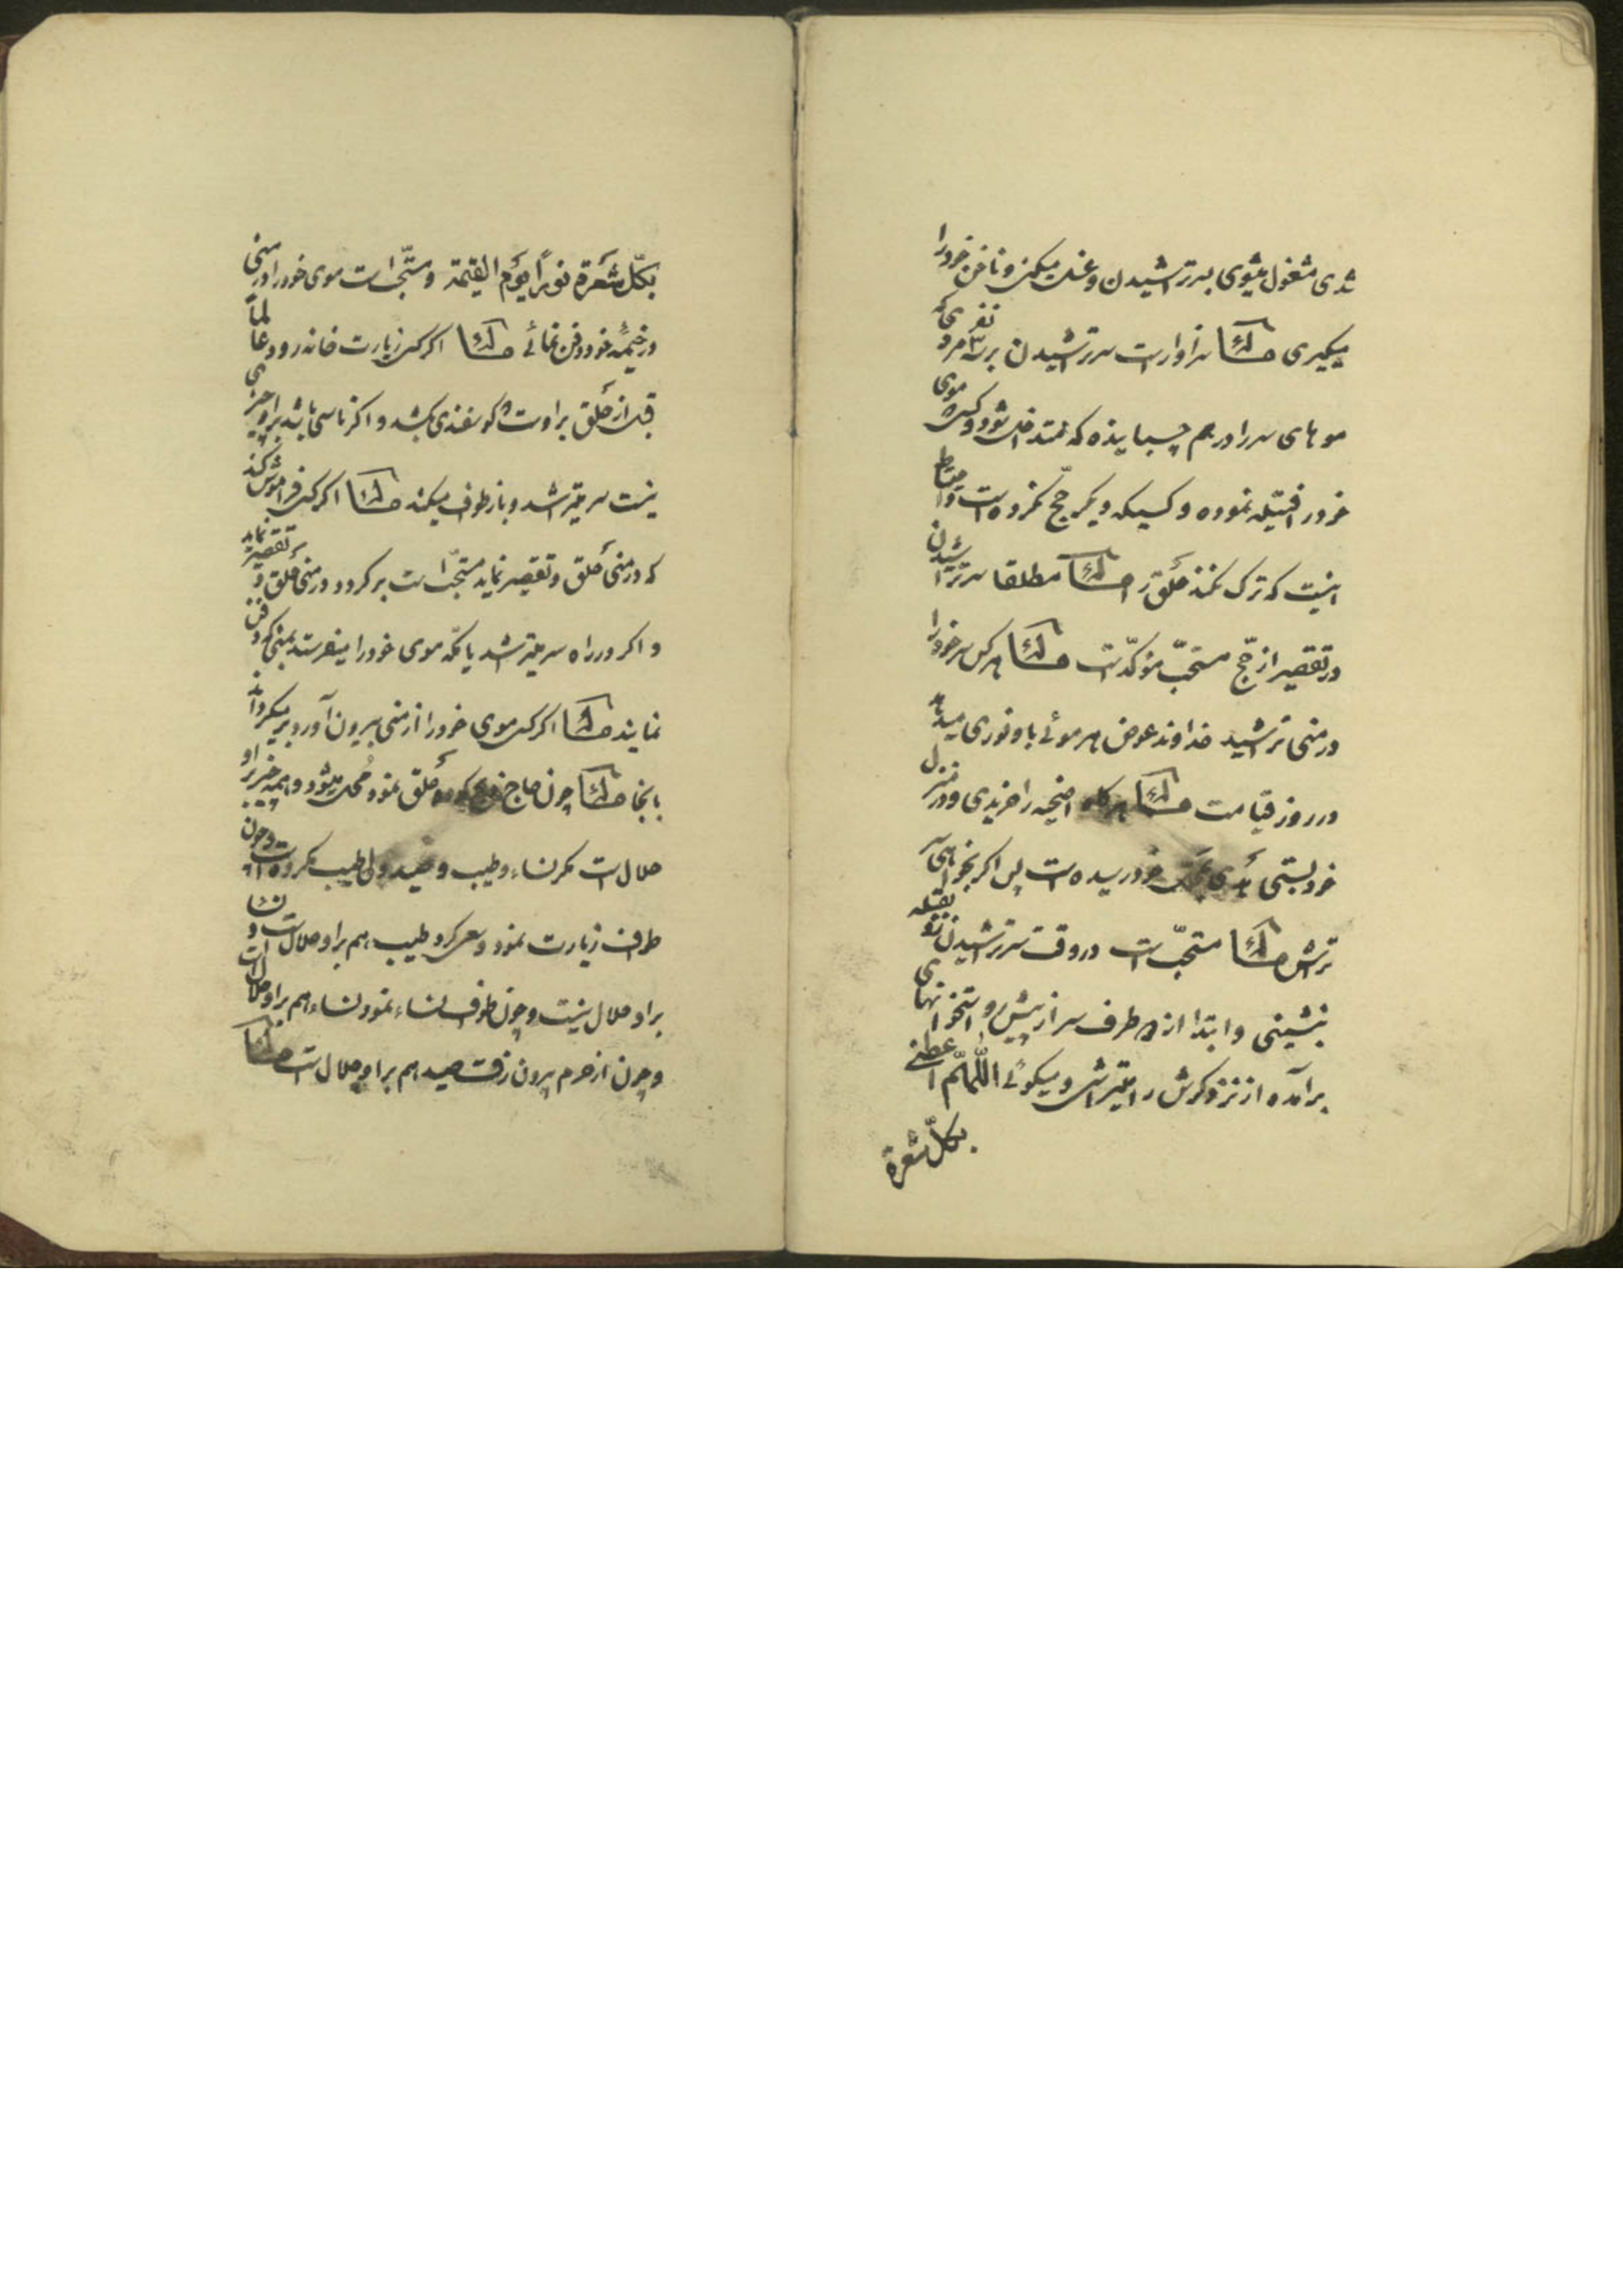 شدی مشغول میشوی بسر تراشیدن و غسل میکنی و ناخن خود را
میگیری مسئله سزاوار است سر تراشیدن بر سه مرد نفری که
موهای سر را در هم چسبانیده که متداخل شود و کسیکه موی
خود را فتیله نموده و کسیکه دیگر حج نکرده است و احتیاط
اینست که ترک نکند حلق را مسئله مطلقا سر تراشیدن
در تقصیر از حج مستحب مؤکد است مسئله هر کس سر خود را
در منی تراشید خداوند عوض هر موئی باو نوری میدهد
در روز قیامت مسئله هرگاه اضحیه را خریدی و در منزل
خود بستی هدی بمحل خود رسیده است پس اگر بخواهی سر
بتراش مسئله مستحب است در وقت سر تراشیدن رو بقبله
بنشینی و ابتدا از طرف سر از پیش و استخوانهای
برآمده از نزد گوش را میتراشی و میگوئی اللّهمّ اعطنی
بکلّ شعرة
بکلّ شَعرَة نوراً یوم القیمة و مستحب است موی خود را در منی
در خیمه خود دفن نمائی مسئله اگر کسی زیارت خانه رود عالماً
قبل از حلق بر اوست گوسفندی بکشد و اگر ناسی باشد بر او چیزی
نیست سر میتراشد و باز طواف میکند مسئله اگر کسی فراموش کند
که در منی حلق و تقصیر نماید مستحب است برگردد در منی حلق و تقصیر نماید
و اگر در راه سر میتراشد یا نکه موی خود را میفرستد بمنی که دفن
نمایند مسئله اگر کسی موی خود را از منی بیرون آورد برمیگرداند
بانجا مسئله چون حاج حلق نمود محل میشود و همه چیز بر او
حلال است مگر نساء و طیب و صید ولی طیب مکروه است و چون
طواف زیارت نمود و سعی کرد طیب هم بر او حلال است و نساء
بر او حلال نیست و چون طواف نساء نمود نساء هم بر او حلال است
و چون از حرم بیرون رفت صید هم بر او حلال است مسئله